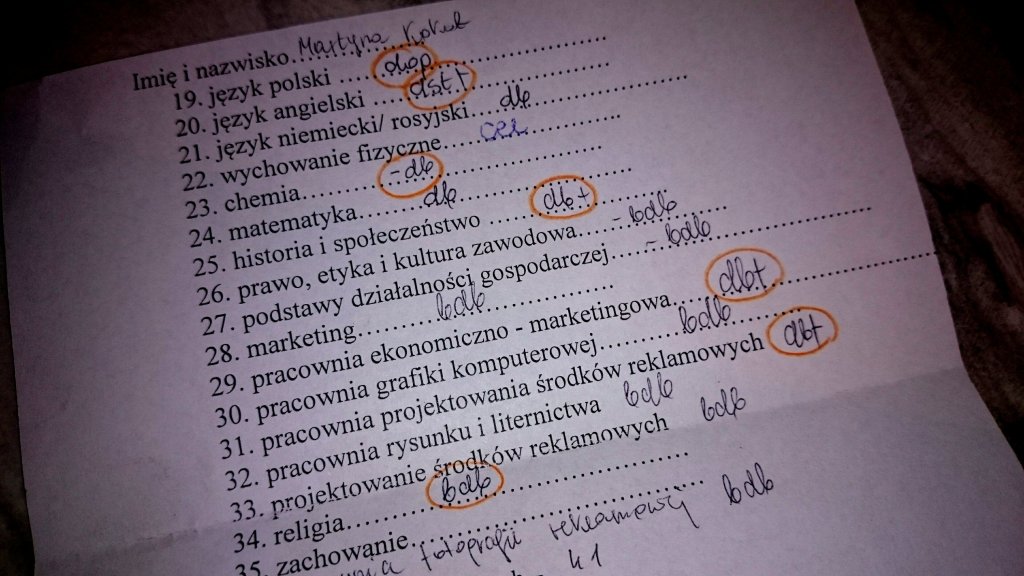 Imię i nazwisko...Martyna Kokot
19. język polski ..... dop
20. język angielski .... dst+
21. język niemiecki/ rosyjski.... db
22. wychowanie fizyczne..... cel
23. chemia......... -db
24. matematyka....... db
25. historia i społeczeństwo ..... db+
26. prawo, etyka i kultura zawodowa.... - bdb
27. podstawy działalności gospodarczej.... - bdb
28. marketing......... bdb
29. pracownia ekonomiczno - marketingowa..... db+
30. pracownia grafiki komputerowej......... bdb
31. pracownia projektowania środków reklamowych db+
32. pracownia rysunku i liternictwa bdb
33. projektowanie środków reklamowych bdb
34. religia......... bdb
35. zachowanie
fotografii reklamowej bdb
41